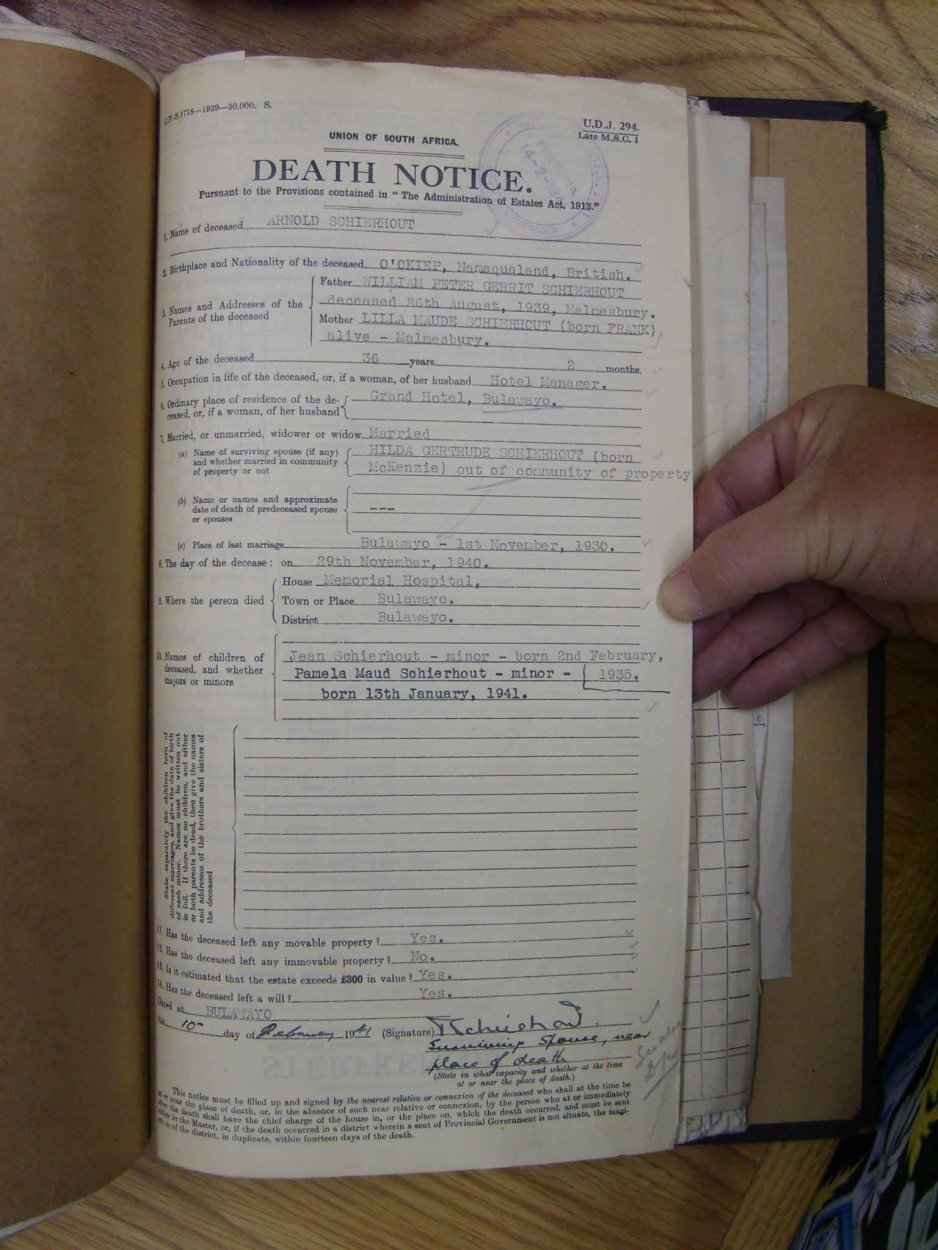 G.P.-S.1718—1939—50,000. S.
U.D.J. 294.
Late M.S.C. 1
UNION OF SOUTH AFRICA.
DEATH NOTICE.
Pursuant to the Provisions contained in "The Administration of Estates Act, 1913."
PRETORIA
14-2-19
1. Name of deceased ARNOLD SCHIERHOUT
2. Birthplace and Nationality of the deceased O'OKIEP, Namaqualand, British.
3. Names and Addresses of the Parents of the deceased
Father WILLIAM PETER GERRIT SCHIERHOUT
deceased 26th August, 1939, Malmesbury.
Mother LILLA MAUDE SCHIERHOUT (born FRANK)
alive - Malmesbury.
4. Age of the deceased 36 years 2 months.
5. Occupation in life of the deceased, or, if a woman, of her husband Hotel Manager.
6. Ordinary place of residence of the de- Grand Hotel, Bulawayo.
ceased, or, if a woman, of her husband
7. Married, or unmarried, widower or widow Married
(a) Name of surviving spouse (if any) HILDA GERTRUDE SCHIERHOUT (born
and whether married in community McKenzie) out of community of property
of property or not
(b) Name or names and approximate
date of death of predeceased spouse ---
or spouses
(c) Place of last marriage Bulawayo - 1st November, 1930.
8. The day of the decease: on 29th November, 1940.
9. Where the person died
House Memorial Hospital,
Town or Place Bulawayo.
District Bulawayo.
10. Names of children of Jean Schierhout - minor - born 2nd February,
deceased, and whether Pamela Maud Schierhout - minor - 1935.
majors or minors born 13th January, 1941.
State separately the children born of
different marriages, and give the date of birth
of each minor. Names must be written out
in full. If there are no children, and either
or both parents be dead, then give the names
and addresses of the brothers and sisters of
the deceased
11. Has the deceased left any movable property? Yes.
12. Has the deceased left any immovable property? No.
13. Is it estimated that the estate exceeds £300 in value? Yes.
14. Has the deceased left a will? Yes.
Dated at BULAWAYO
the 10th day of February 1941 (Signature) Schierhout
Surviving Spouse, near
place of death
(State in what capacity and whether at the time
at or near the place of death.)
This notice must be filled up and signed by the nearest relative or connexion of the deceased who shall at the time be
at or near the place of death, or, in the absence of such near relative or connexion, by the person who at or immediately
after the death shall have the chief charge of the house in, or the place on, which the death occurred, and must be sent
either to the Master, or, if the death occurred in a district wherein a seat of Provincial Government is not situate, the magi-
strate of the district, in duplicate, within fourteen days of the death.